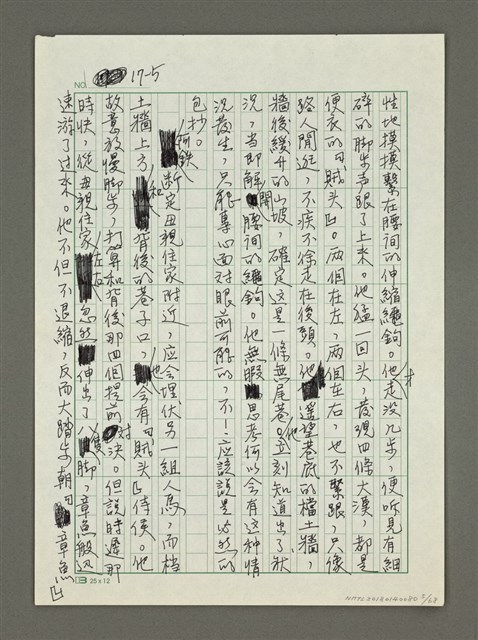 NO.
17-5
性地摸摸繫在腰間的伸縮繩鉤。他才走沒几步，便听見有細
碎的脚步声跟了上來。他猛一回头，發現四條大漢，都是
便衣的「賊头」。两個在左，两個在右，也不緊跟，只像
路人閒逛，不疾不徐走在後頭。他遥望巷底的檔土牆，
牆後緩升的山坡，確定這是一條無尾巷。他立刻知道出了狀
況，当即解開腰間的繩鉤。他無暇思考何以会有這种情
況發生，只能專心面对眼前可能的，不！应該說是必然的
包抄。
何鉄断定母親住家附近，应会埋伏另一組人馬，而档
土牆上方和背後的巷子口，也会有「賊头」侍侯。他
故意放慢脚步，打算和背後那四個提前对決。但說時遲那
時快，從母親住家左右忽然伸出了八隻脚，章魚般迅
速游了过來。他不但不退縮，反而大踏步朝「章魚」
25×12
NMTL20180040080 5/68